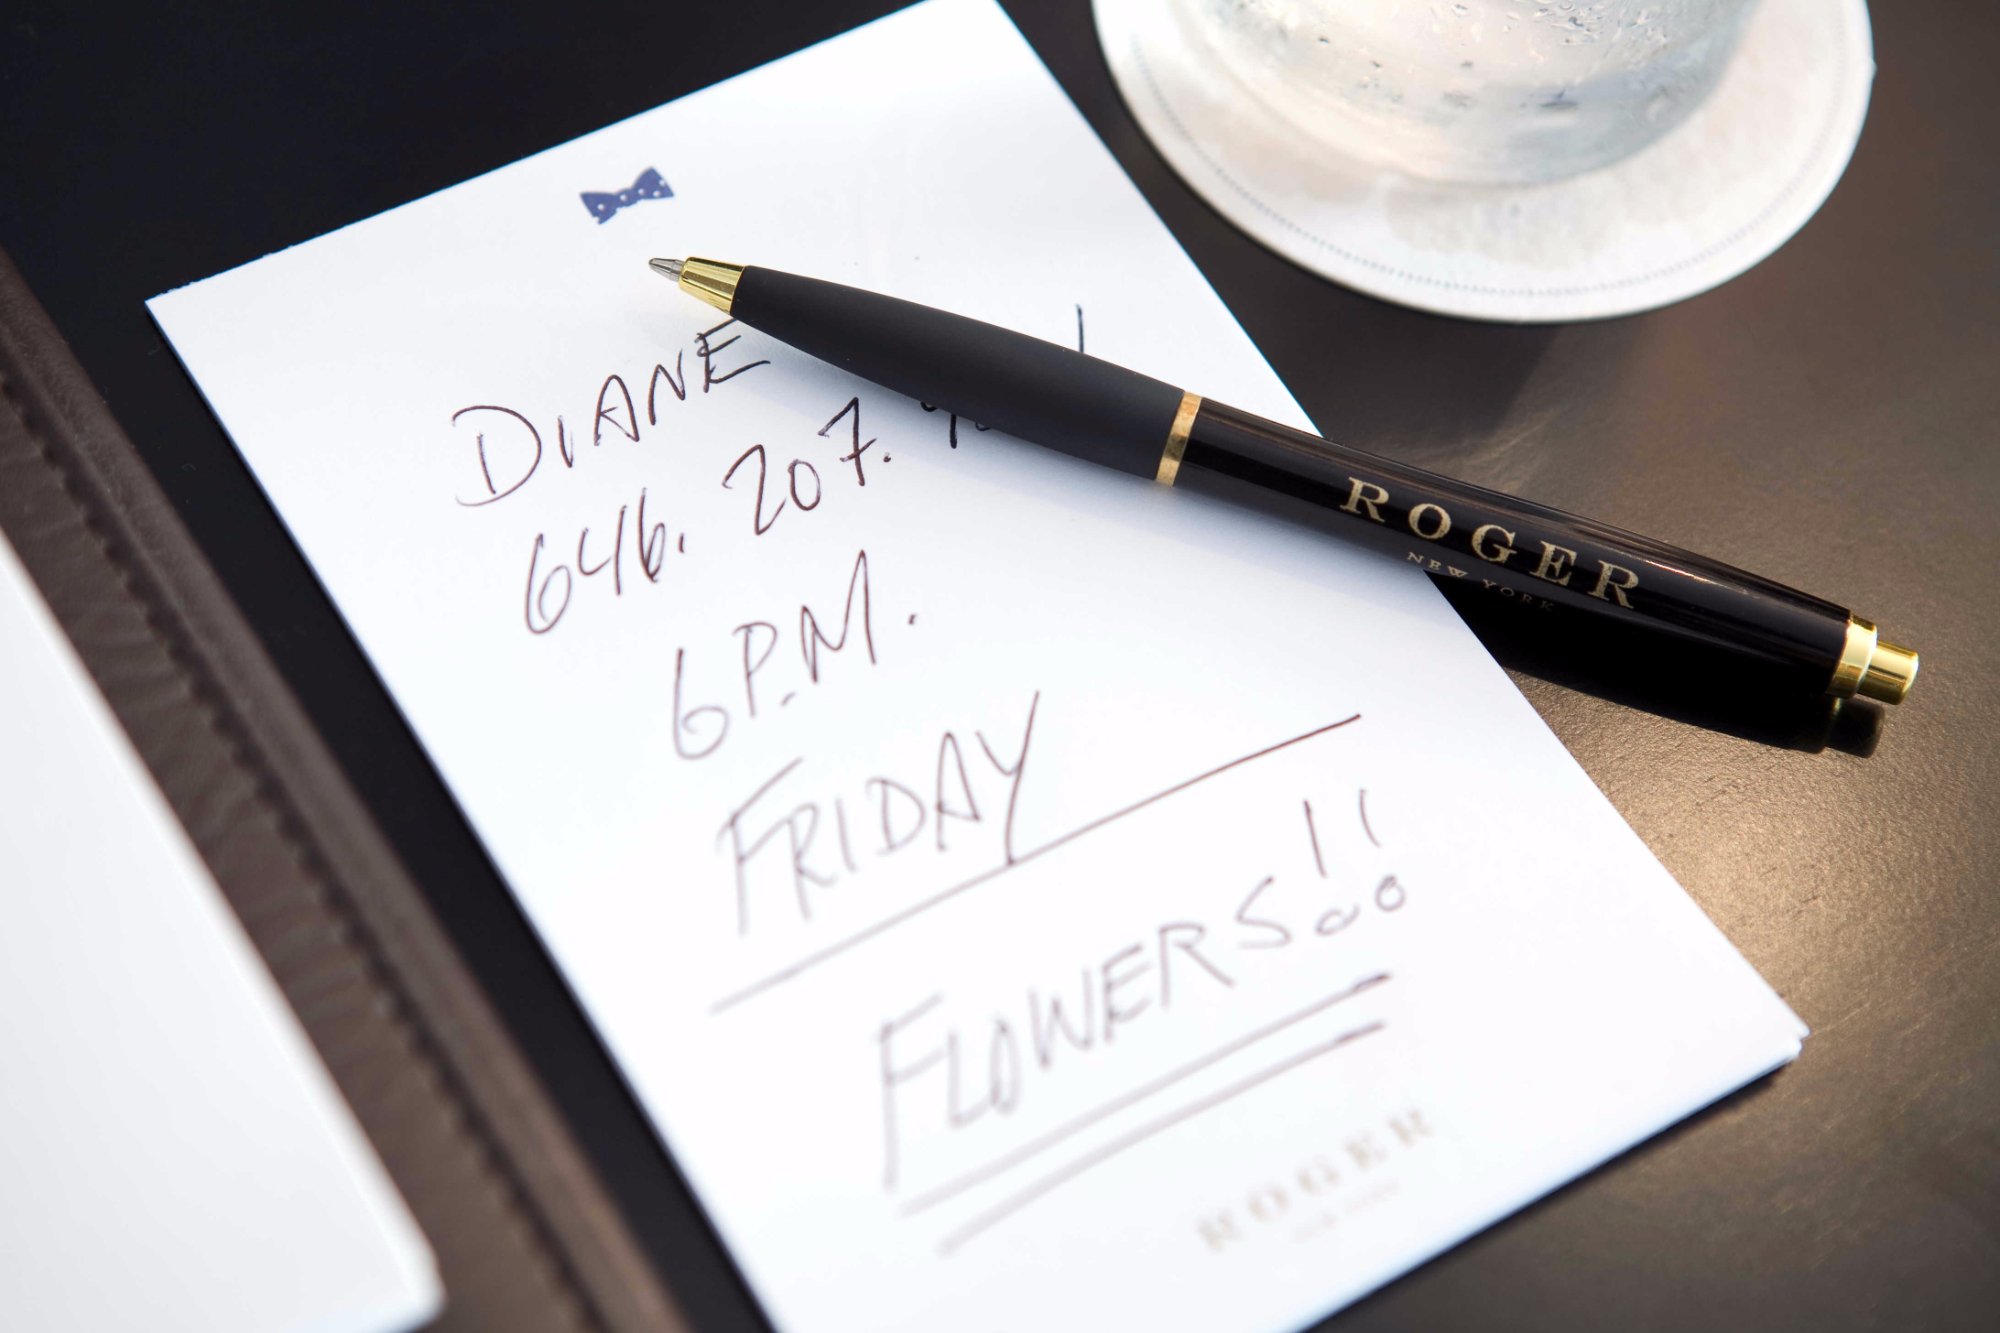 DIANE
646. 207.
6 P.M.
FRIDAY
FLOWERS!!
ROGER
NEW YORK
ROGER